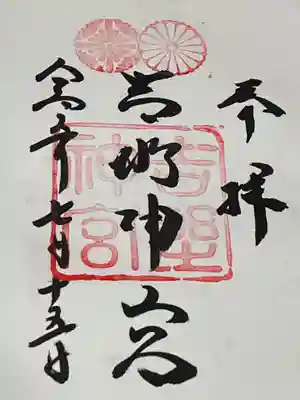 奉拝
吉野神宮
年七月十五日
吉野神宮